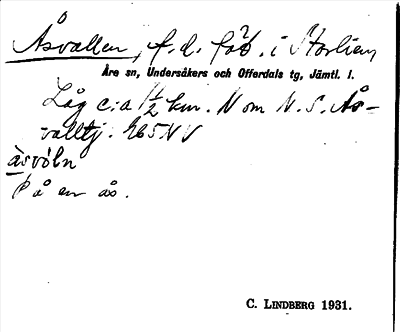 Åsvallen, f.d. fäb. i Storlien
Åre sn, Undersåkers och Offerdals tg, Jämtl. l.
Låg c:a 1½ km. N om N. S. Ås-
valltj. 265 NV
àsvóln
På en ås.
C. LINDBERG 1931.